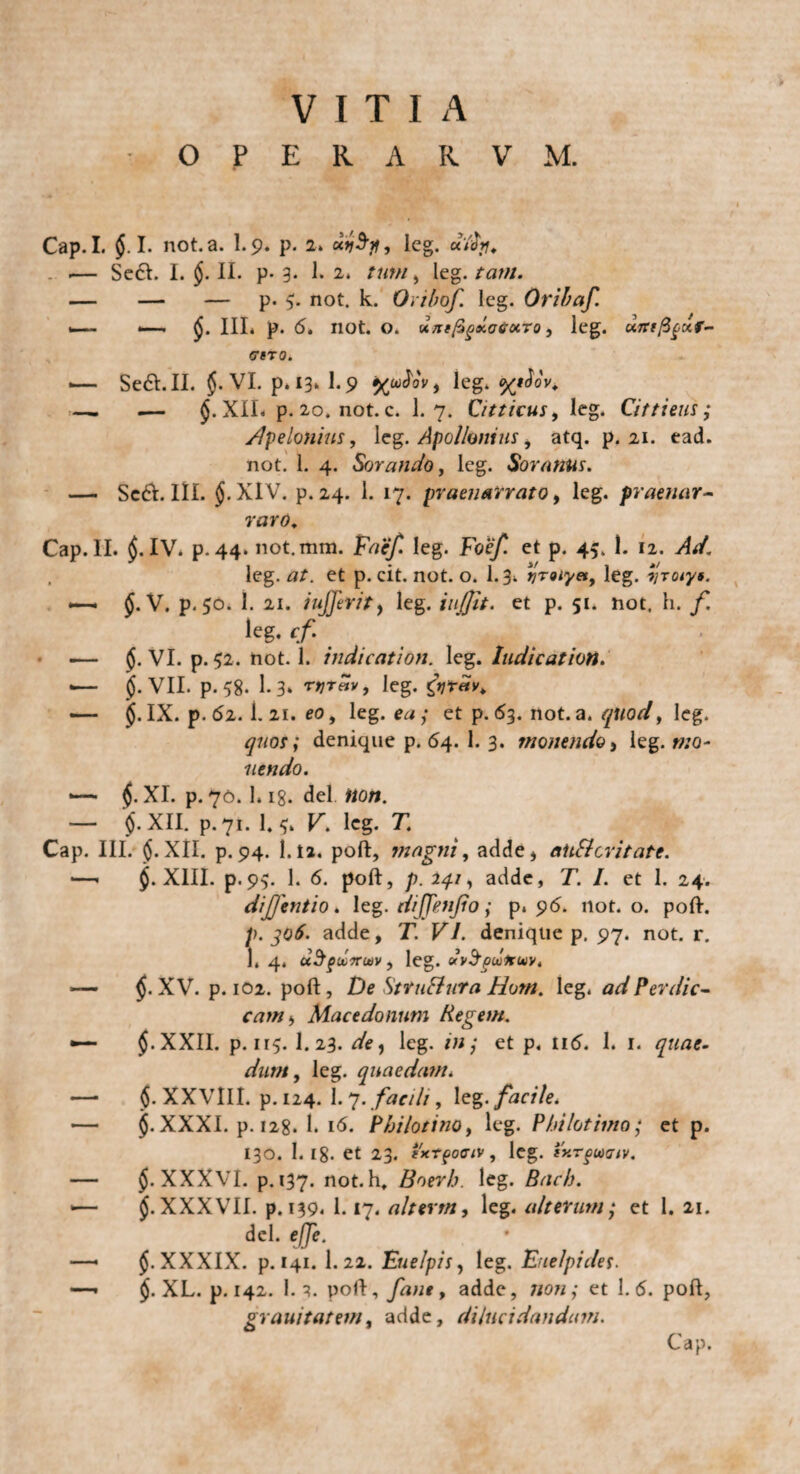 VITIA
OPERARVM.
Cap. I. §. I. not. a. l. 9. p. 2. ἀήθη, leg. ἀΐδη.
— Sect. I. §. II. p. 3. l. 2. tum, leg. tam.
— — — p. 5. not. k. Oribof. leg. Oribaſ.
— — §. III. p. 6. not. o. ἀπεβράσσατο, leg. ἀπεβράσ-
σετο.
— Sect. II. §. VI. p. 13. l. 9 ἐχωδόν, leg. ἐχεδόν.
— — §. XII. p. 20. not. c. l. 7. Citticus, leg. Cittieus;
Apelonius, leg. Apollonius, atq. p. 21. ead.
not. l. 4. Sorando, leg. Soranus.
— Sect. III. §. XIV. p. 24. l. 17. praenarrato, leg. praenar-
raro.
Cap. II. §. IV. p. 44. not. mm. Faëſ. leg. Foëſ. et p. 45. l. 12. Ad.
leg. at. et p. cit. not. o. l. 3. ἤτοιγα, leg. ἤτοιγε.
— §. V. p. 50. l. 21. iuſſerit, leg. iuſſit. et p. 51. not. h. f.
leg. cf.
— §. VI. p. 52. not. l. indication. leg. Iudication.
— §. VII. p. 58. l. 3. τητῶν, leg. ζητῶν.
— §. IX. p. 62. l. 21. eo, leg. ea; et p. 63. not. a. quod, leg.
quos; denique p. 64. l. 3. monendo, leg. mo-
uendo.
— §. XI. p. 70. l. 18. del. non.
— §. XII. p. 71. l. 5. V. leg. T.
Cap. III. §. XII. p. 94. l. 12. poſt, magni, adde, auctoritate.
— §. XIII. p. 95. l. 6. poſt, p. 241, adde, T. I. et l. 24.
diſſentio. leg. diſſenſio; p. 96. not. o. poſt.
p. 306. adde, T. VI. denique p. 97. not. r.
l. 4. ἀθρώπων, leg. ἀνθρώπων.
— §. XV. p. 102. poſt, De Structura Hom. leg. ad Perdic-
cam, Macedonum Regem.
— §. XXII. p. 115. l. 23. de, leg. in; et p. 116. l. 1. quae-
dum, leg. quaedam.
— §. XXVIII. p. 124. l. 7. facili, leg. facile.
— §. XXXI. p. 128. l. 16. Philotino, leg. Philotimo; et p.
130. l. 18. et 23. ἔκτροσιν, leg. ἔκτρωσιν.
— §. XXXVI. p. 137. not. h. Boerh. leg. Bach.
— §. XXXVII. p. 139. l. 17. alterm, leg. alterum; et l. 21.
del. eſſe.
— §. XXXIX. p. 141. l. 22. Euelpis, leg. Euelpides.
— §. XL. p. 142. l. 3. poſt, ſane, adde, non; et l. 6. poſt,
grauitatem, adde, dilucidandam.
Cap.